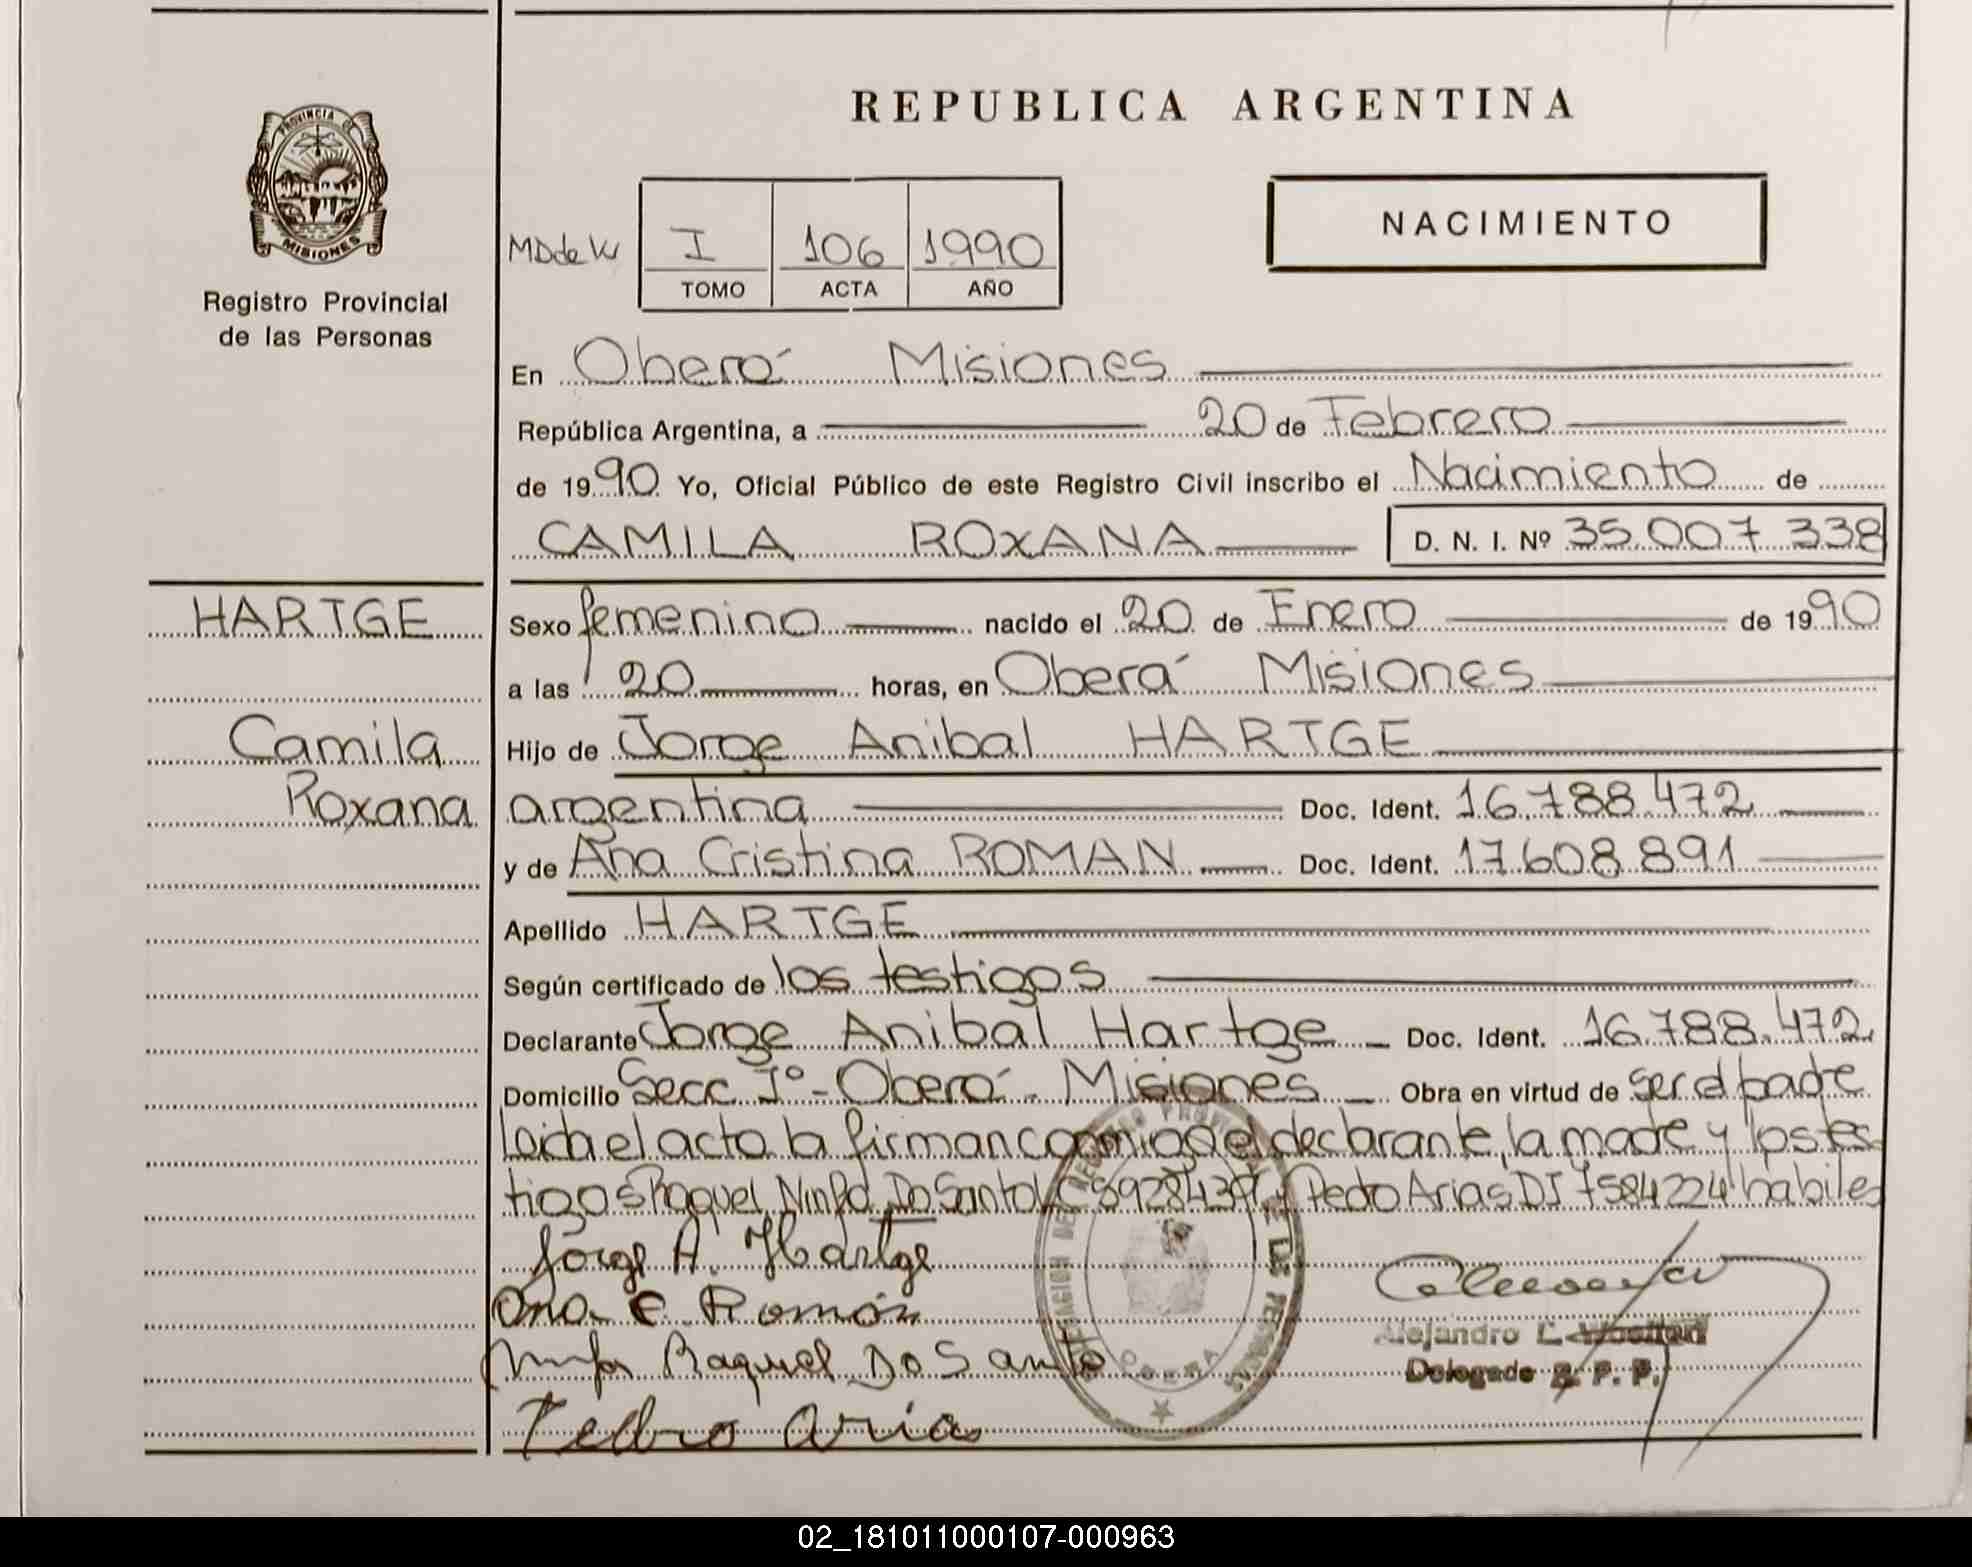 REPUBLICA ARGENTINA
PROVINCIA DE
MISIONES
Registro Provincial
de las Personas
NACIMIENTO
MDdeW I 106 1990
TOMO ACTA AÑO
En Oberá Misiones
República Argentina, a 20 de Febrero
de 1990 Yo, Oficial Público de este Registro Civil inscribo el Nacimiento de
CAMILA ROXANA D. N. I. Nº 35.007.338
HARTGE
Camila
Roxana
Sexo femenino nacido el 20 de Enero de 1990
a las 20 horas, en Oberá Misiones
Hijo de Jorge Anibal HARTGE
argentina Doc. Ident. 16.788.472
y de Ana Cristina ROMAN Doc. Ident. 17.608.891
Apellido HARTGE
Según certificado de los testigos
Declarante Jorge Anibal Hartge Doc. Ident. 16.788.472
Domicilio Secc Iº - Oberá - Misiones Obra en virtud de ser el padre
Leida el acta la firman conmigo el declarante, la madre y los tes
tigos Raquel Ninfa Do Santo y Pedro Arias DI 7584224 habiles
Jorge A. Hartge
Ana C. Román
Ninfa Raquel Do Santo
Pedro Aria
OBERA
Alejandro L.
Delegado R. P. P.
02_181011000107-000963